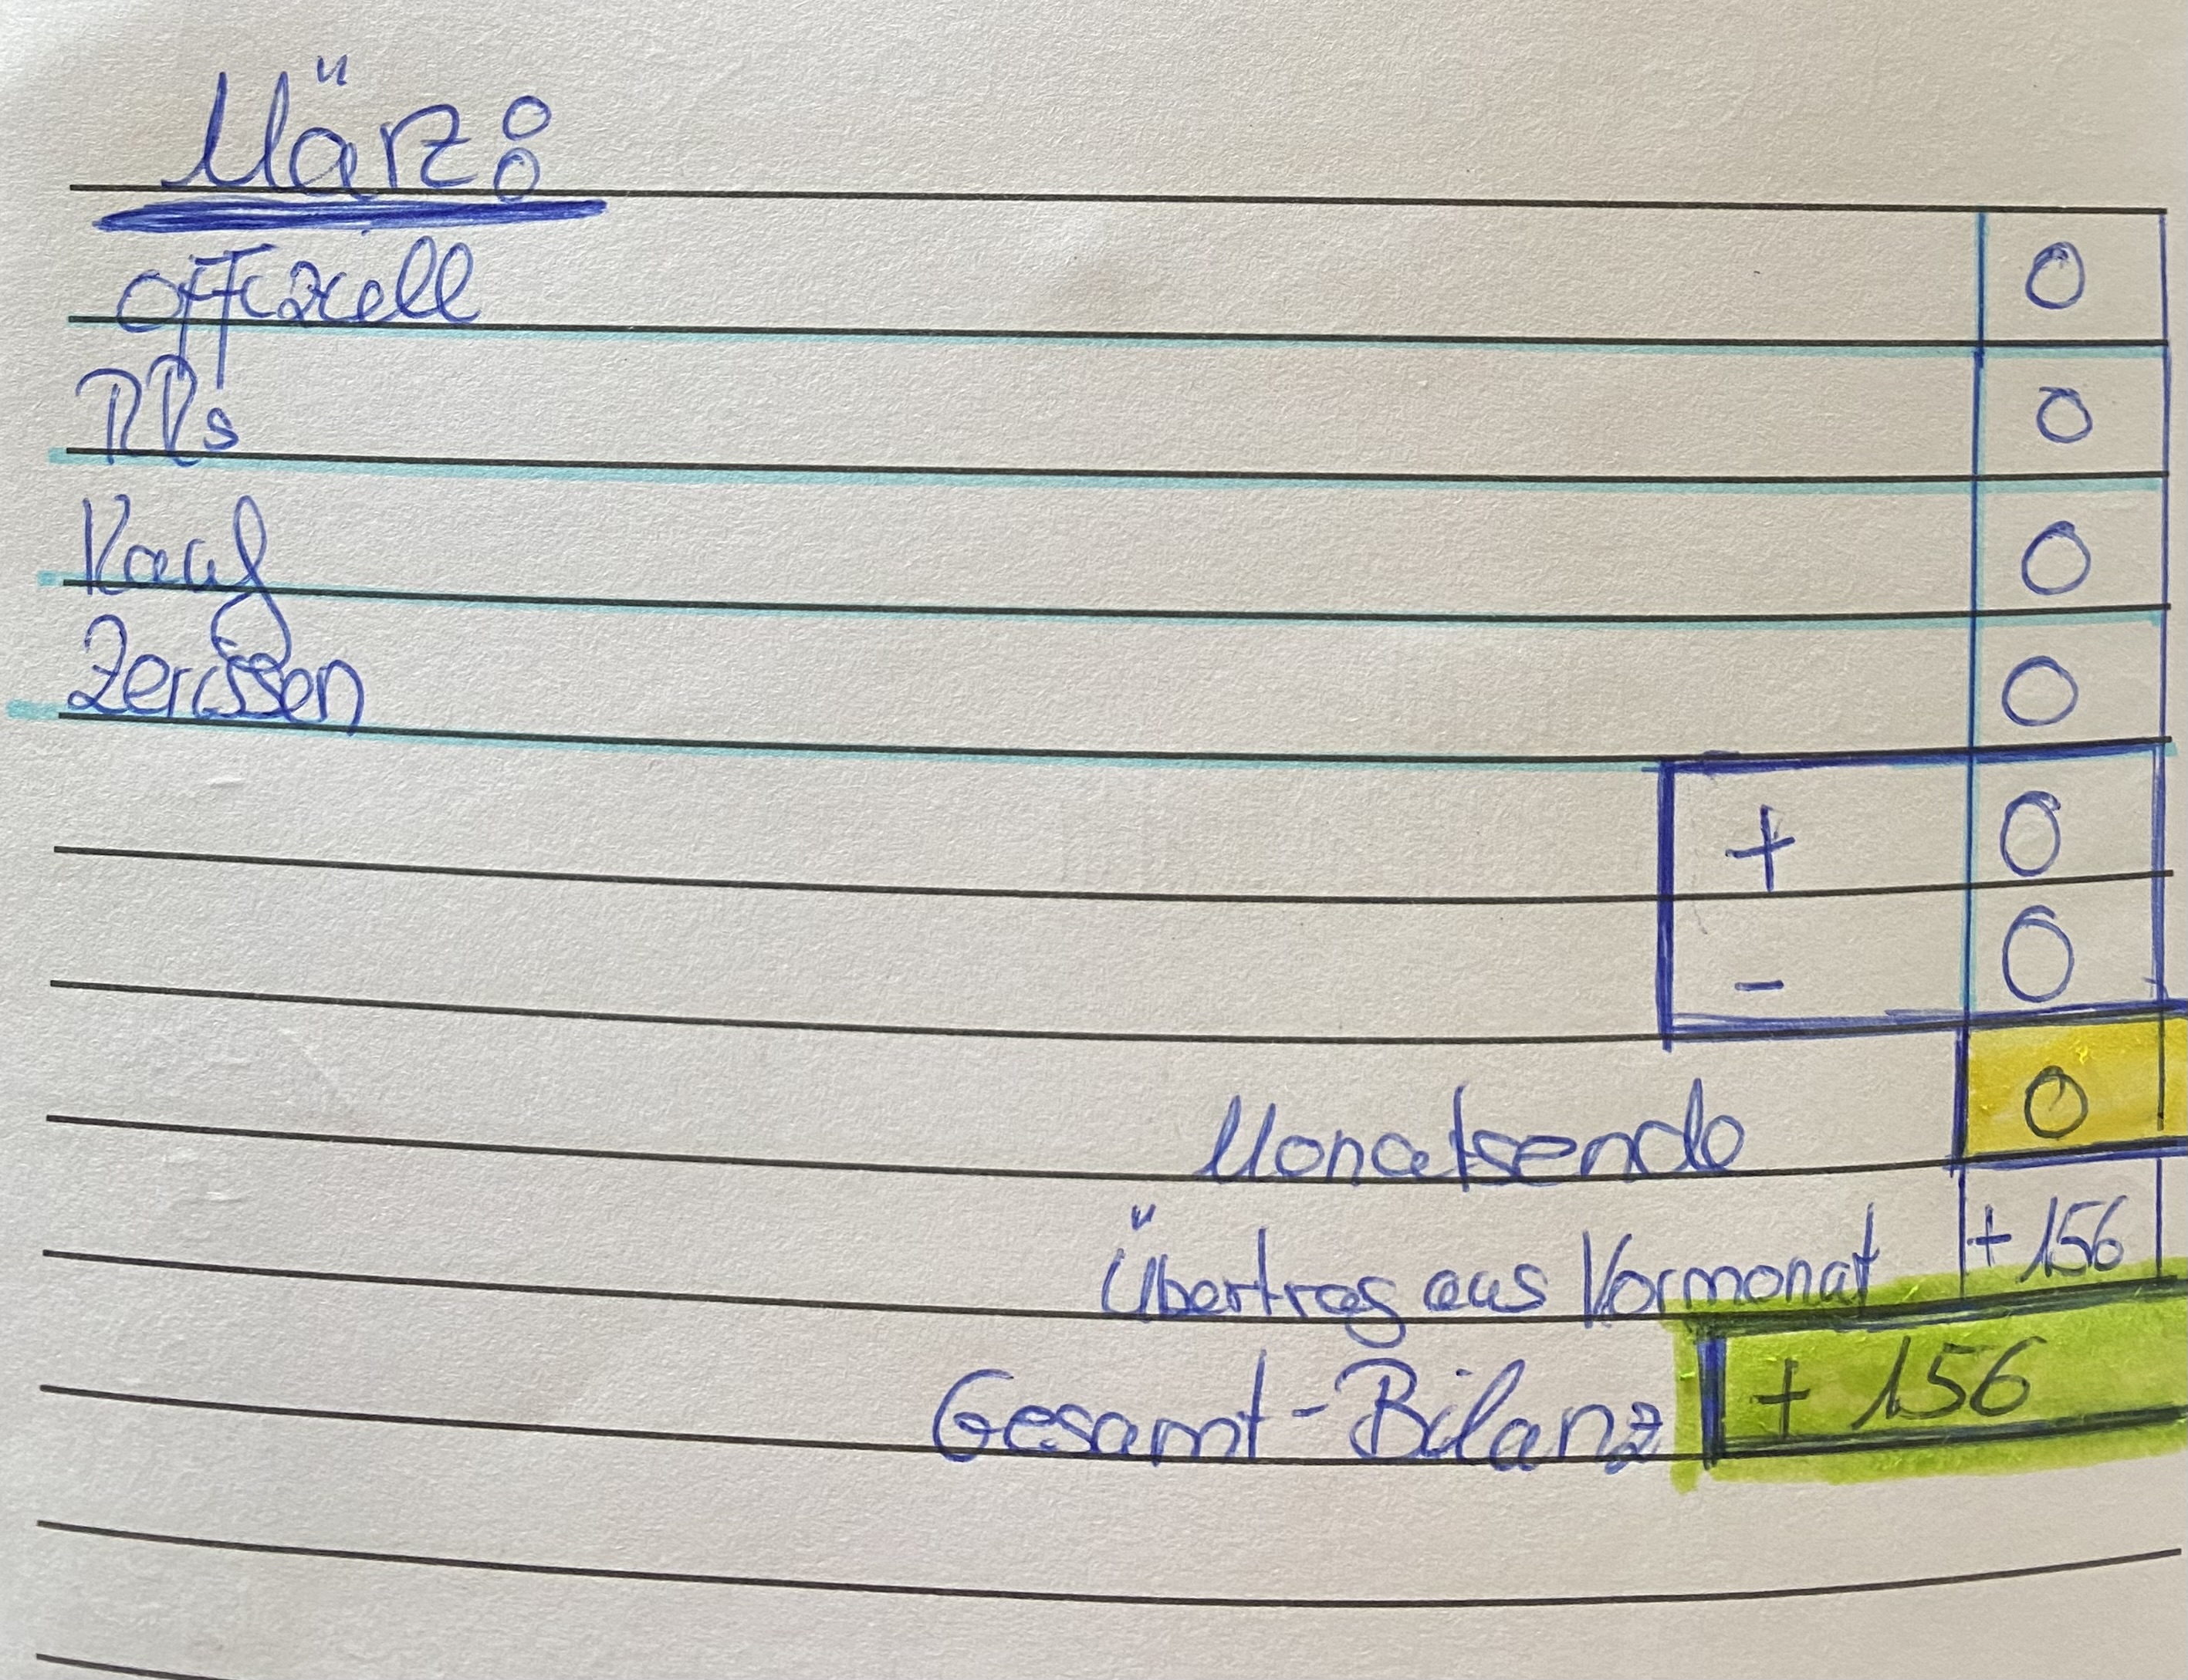 März:
offiziell 0
RRs 0
Kauf 0
Zerissen 0
+ 0
- 0
Monatsende 0
Übertrag aus Vormonat + 156
Gesamt-Bilanz + 156